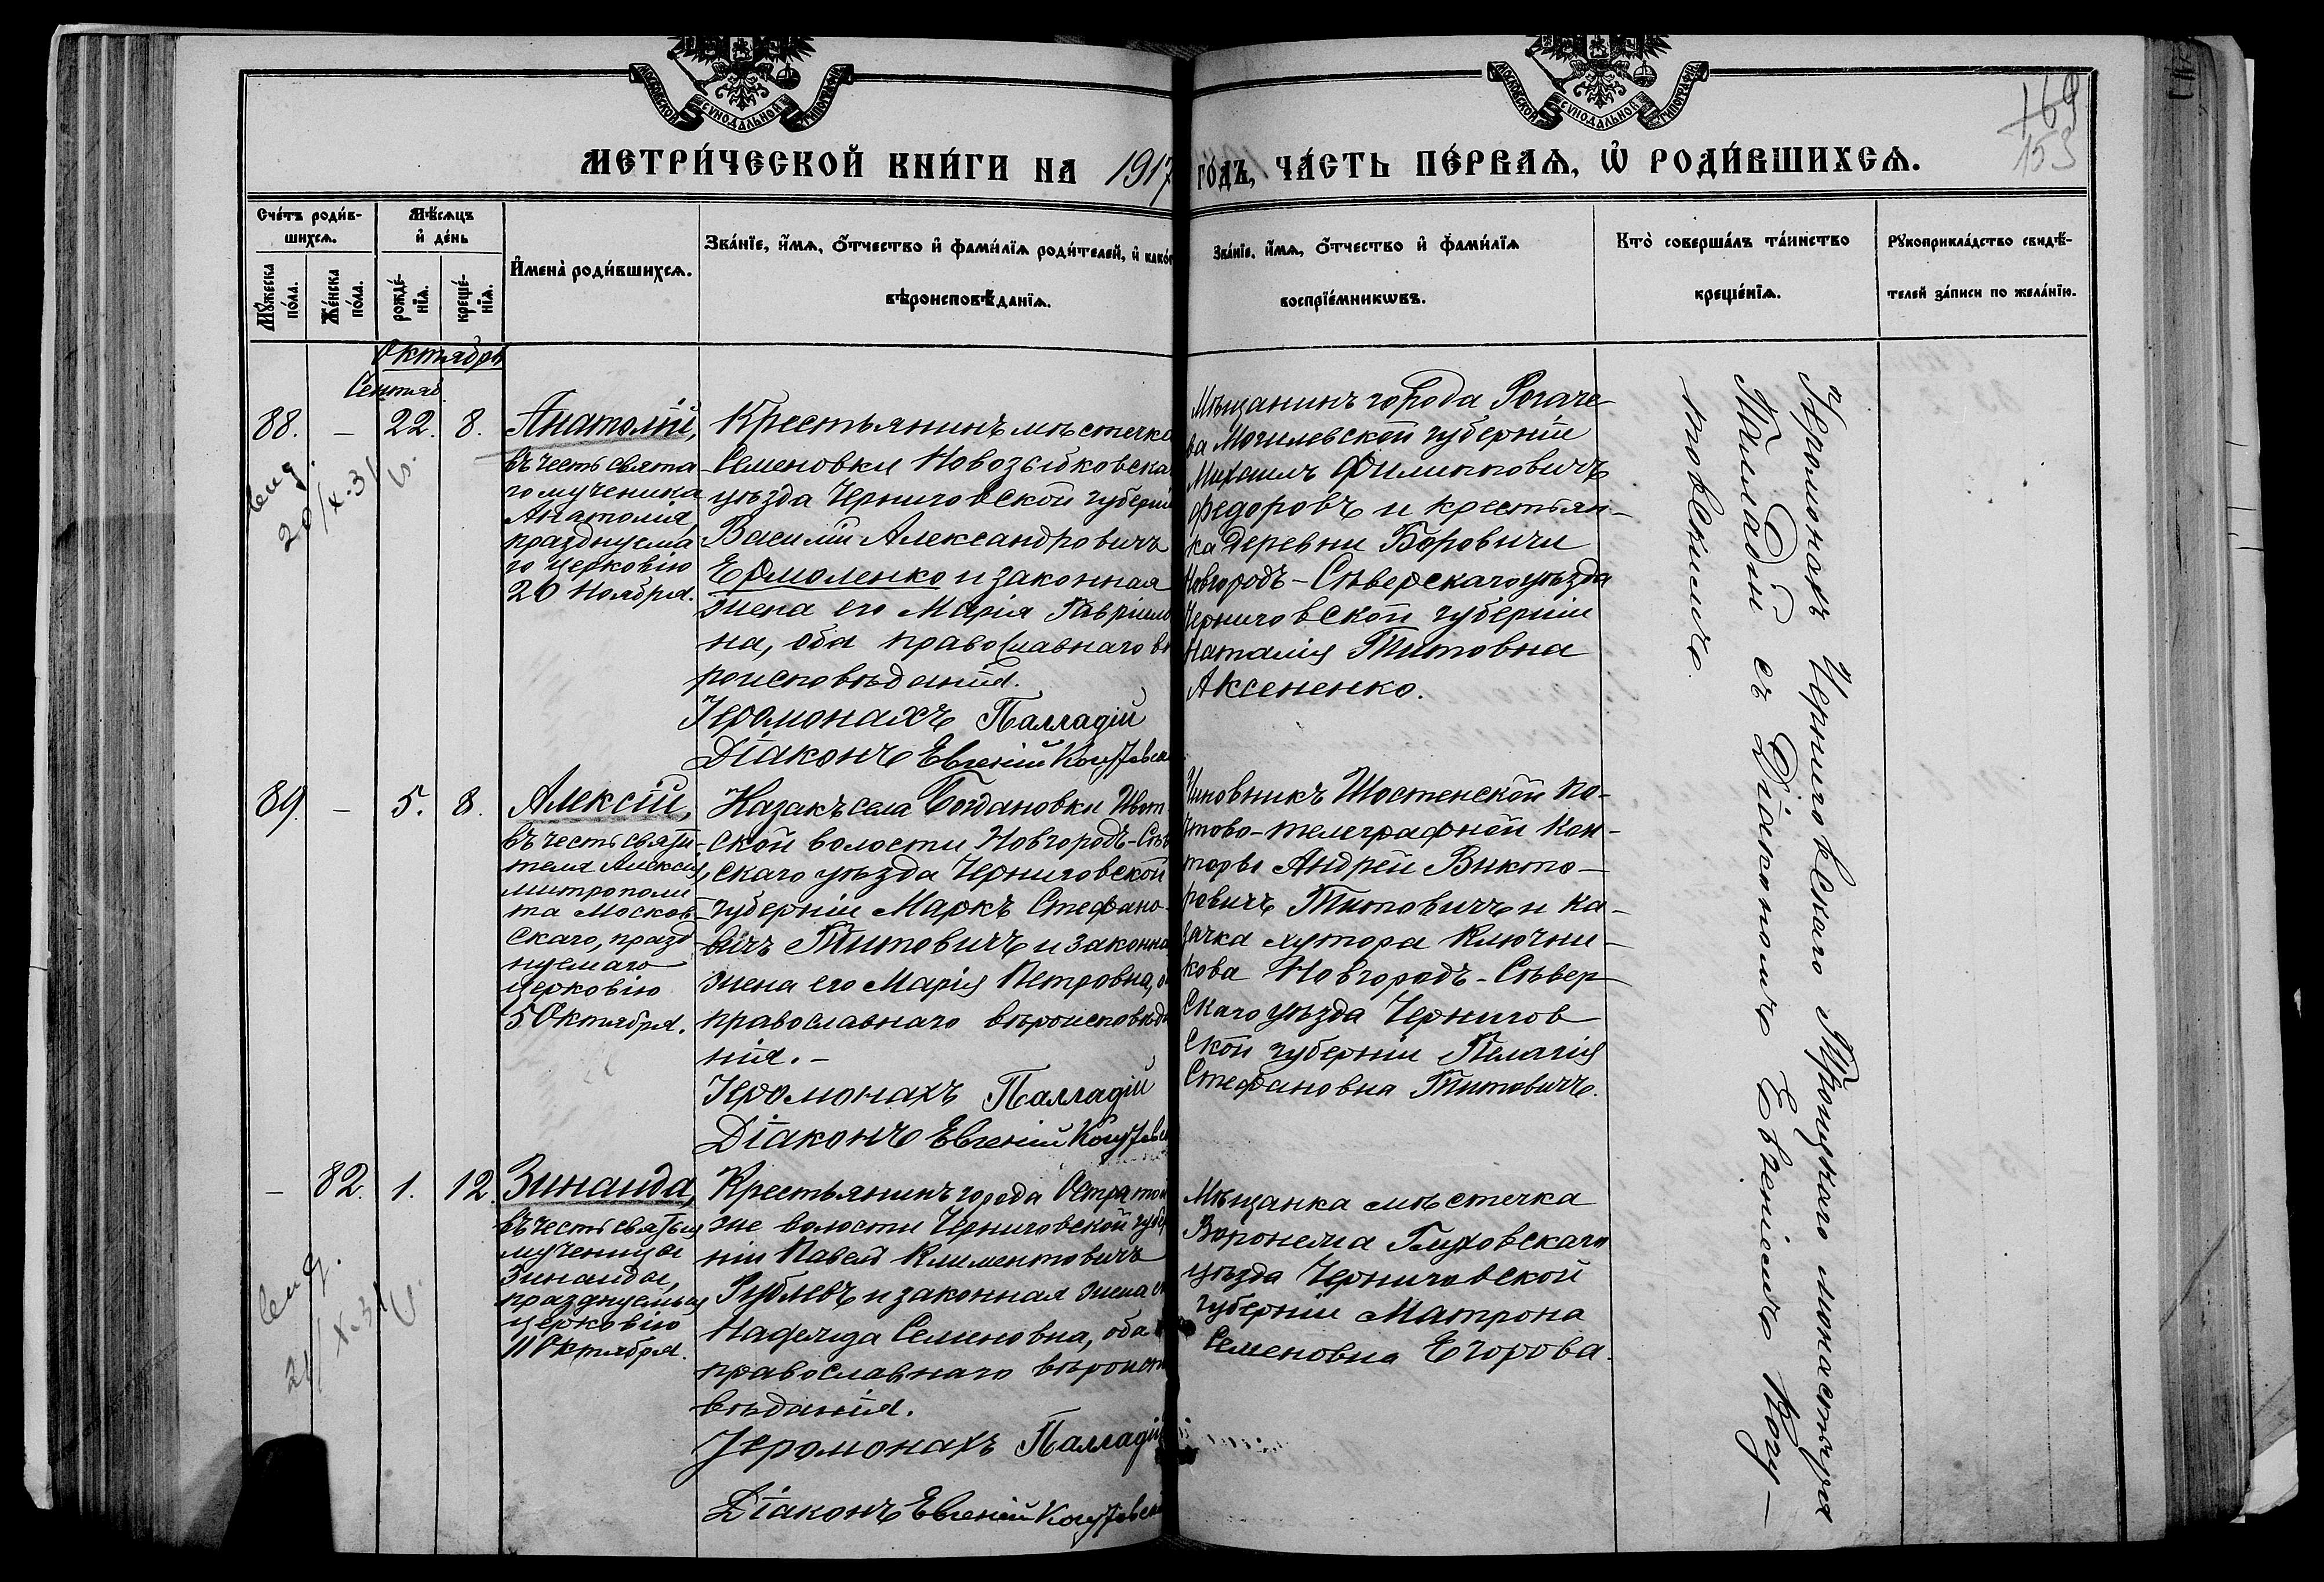 МОСКОВСКОЙ СУНОДАЛЬНОЙ ТИПОГРАФІИ
МОСКОВСКОЙ СУНОДАЛЬНОЙ ТИПОГРАФІИ
169
153
МЕТРИ́ЧЕСКОЙ КНИ́ГИ НА 1917 ГО́ДЪ, ЧА́СТЬ ПЕ́РВАѦ, Ѿ РОДИ́ВШИХСѦ.
Сче́тъ роди́в-
шихсѧ.
Мꙋ́жеска
по́ла.
Же́нска
по́ла.
Мѣ́сѧцъ
и҆ де́нь
рожде́-
нїѧ.
креще́-
нїѧ.
И҆мена̀ роди́вшихсѧ.
Зва́нїе, и҆́мѧ, ѻ҆́тчество и҆ фами́лїѧ роди́телей, и҆ како́г
вѣроисповѣ́данїѧ.
Зва́нїе, и҆́мѧ, ѻ҆́тчество и҆ фами́лїѧ
воспрїе́мникѡвъ.
Кто̀ соверша́лъ та́инство
креще́нїѧ.
Рꙋкоприкла́дство свидѣ́-
телей за́писи по жела́нїю.
Октябрь
Сентяб.
88. – 22. 8.
Анатолій,
въ честь свята
го мученика
Анатолія,
празднуема
го церковію
20 Ноября.
Крестьянинъ мѣстечка
Семеновки Новозыбковска
уѣзда Черниговской губерніи
Василій Александровичъ
Ермоленко и законная
жена его Марія Гавріило
на, оба православнаго вѣ
роисповѣданія.
Іеромонахъ Палладій
Діаконъ Евгеній
Мѣщанинъ города Рогаче-
ва Могилевской губерніи
Михаилъ Филипповичъ
Федоровъ и крестьян-
ка деревни Боровичи
Новгородъ-Сѣверскаго уѣзда
Черниговской губерніи
Наталія Титовна
Аксененко.
89. – 5. 8.
Алексій,
въ честь святи-
теля Алексія,
митрополи
та Москов-
скаго, празд
нуемаго
церковію
5 Октября.
Казакъ села Богдановки Ивот
ской волости Новгородъ-Сѣв
скаго уѣзда Черниговской
губерніи Маркъ Стефано-
вичъ Титовичъ и законна
жена его Марія Петровна, о
православнаго вѣроисповѣда
нія. –
Іеромонахъ Палладій
Діаконъ Евгеній
Чиновникъ Шостенской по-
чтово-телеграфной кон-
торы Андрей Викто-
ровичъ Титовичъ и ка-
зачка хутора Ключни-
кова Новгородъ-Сѣвер-
скаго уѣзда Чернигов
ской губерніи Пелагія
Стефановна Титовичъ.
– 82. 1. 12.
Зинаида,
въ честь святыя
мученицы
Зинаиды,
празднуемыя
церковію
11 Октября.
Крестьянинъ города
же волости Черниговской губер
ніи Павелъ Климентовичъ
Рублевъ и законная жена
Надежда Семеновна, оба
православнаго вѣроиспо
вѣданія.
Іеромонахъ Палладій
Діаконъ Евгеній
Мѣщанка мѣстечка
Воронежа Глуховскаго
уѣзда Черниговской
губерніи Матрона
Семеновна Егорова.
Іеромонахъ Черниговскаго Троицкаго монастыря
Палладій съ Діакономъ Евгеніемъ